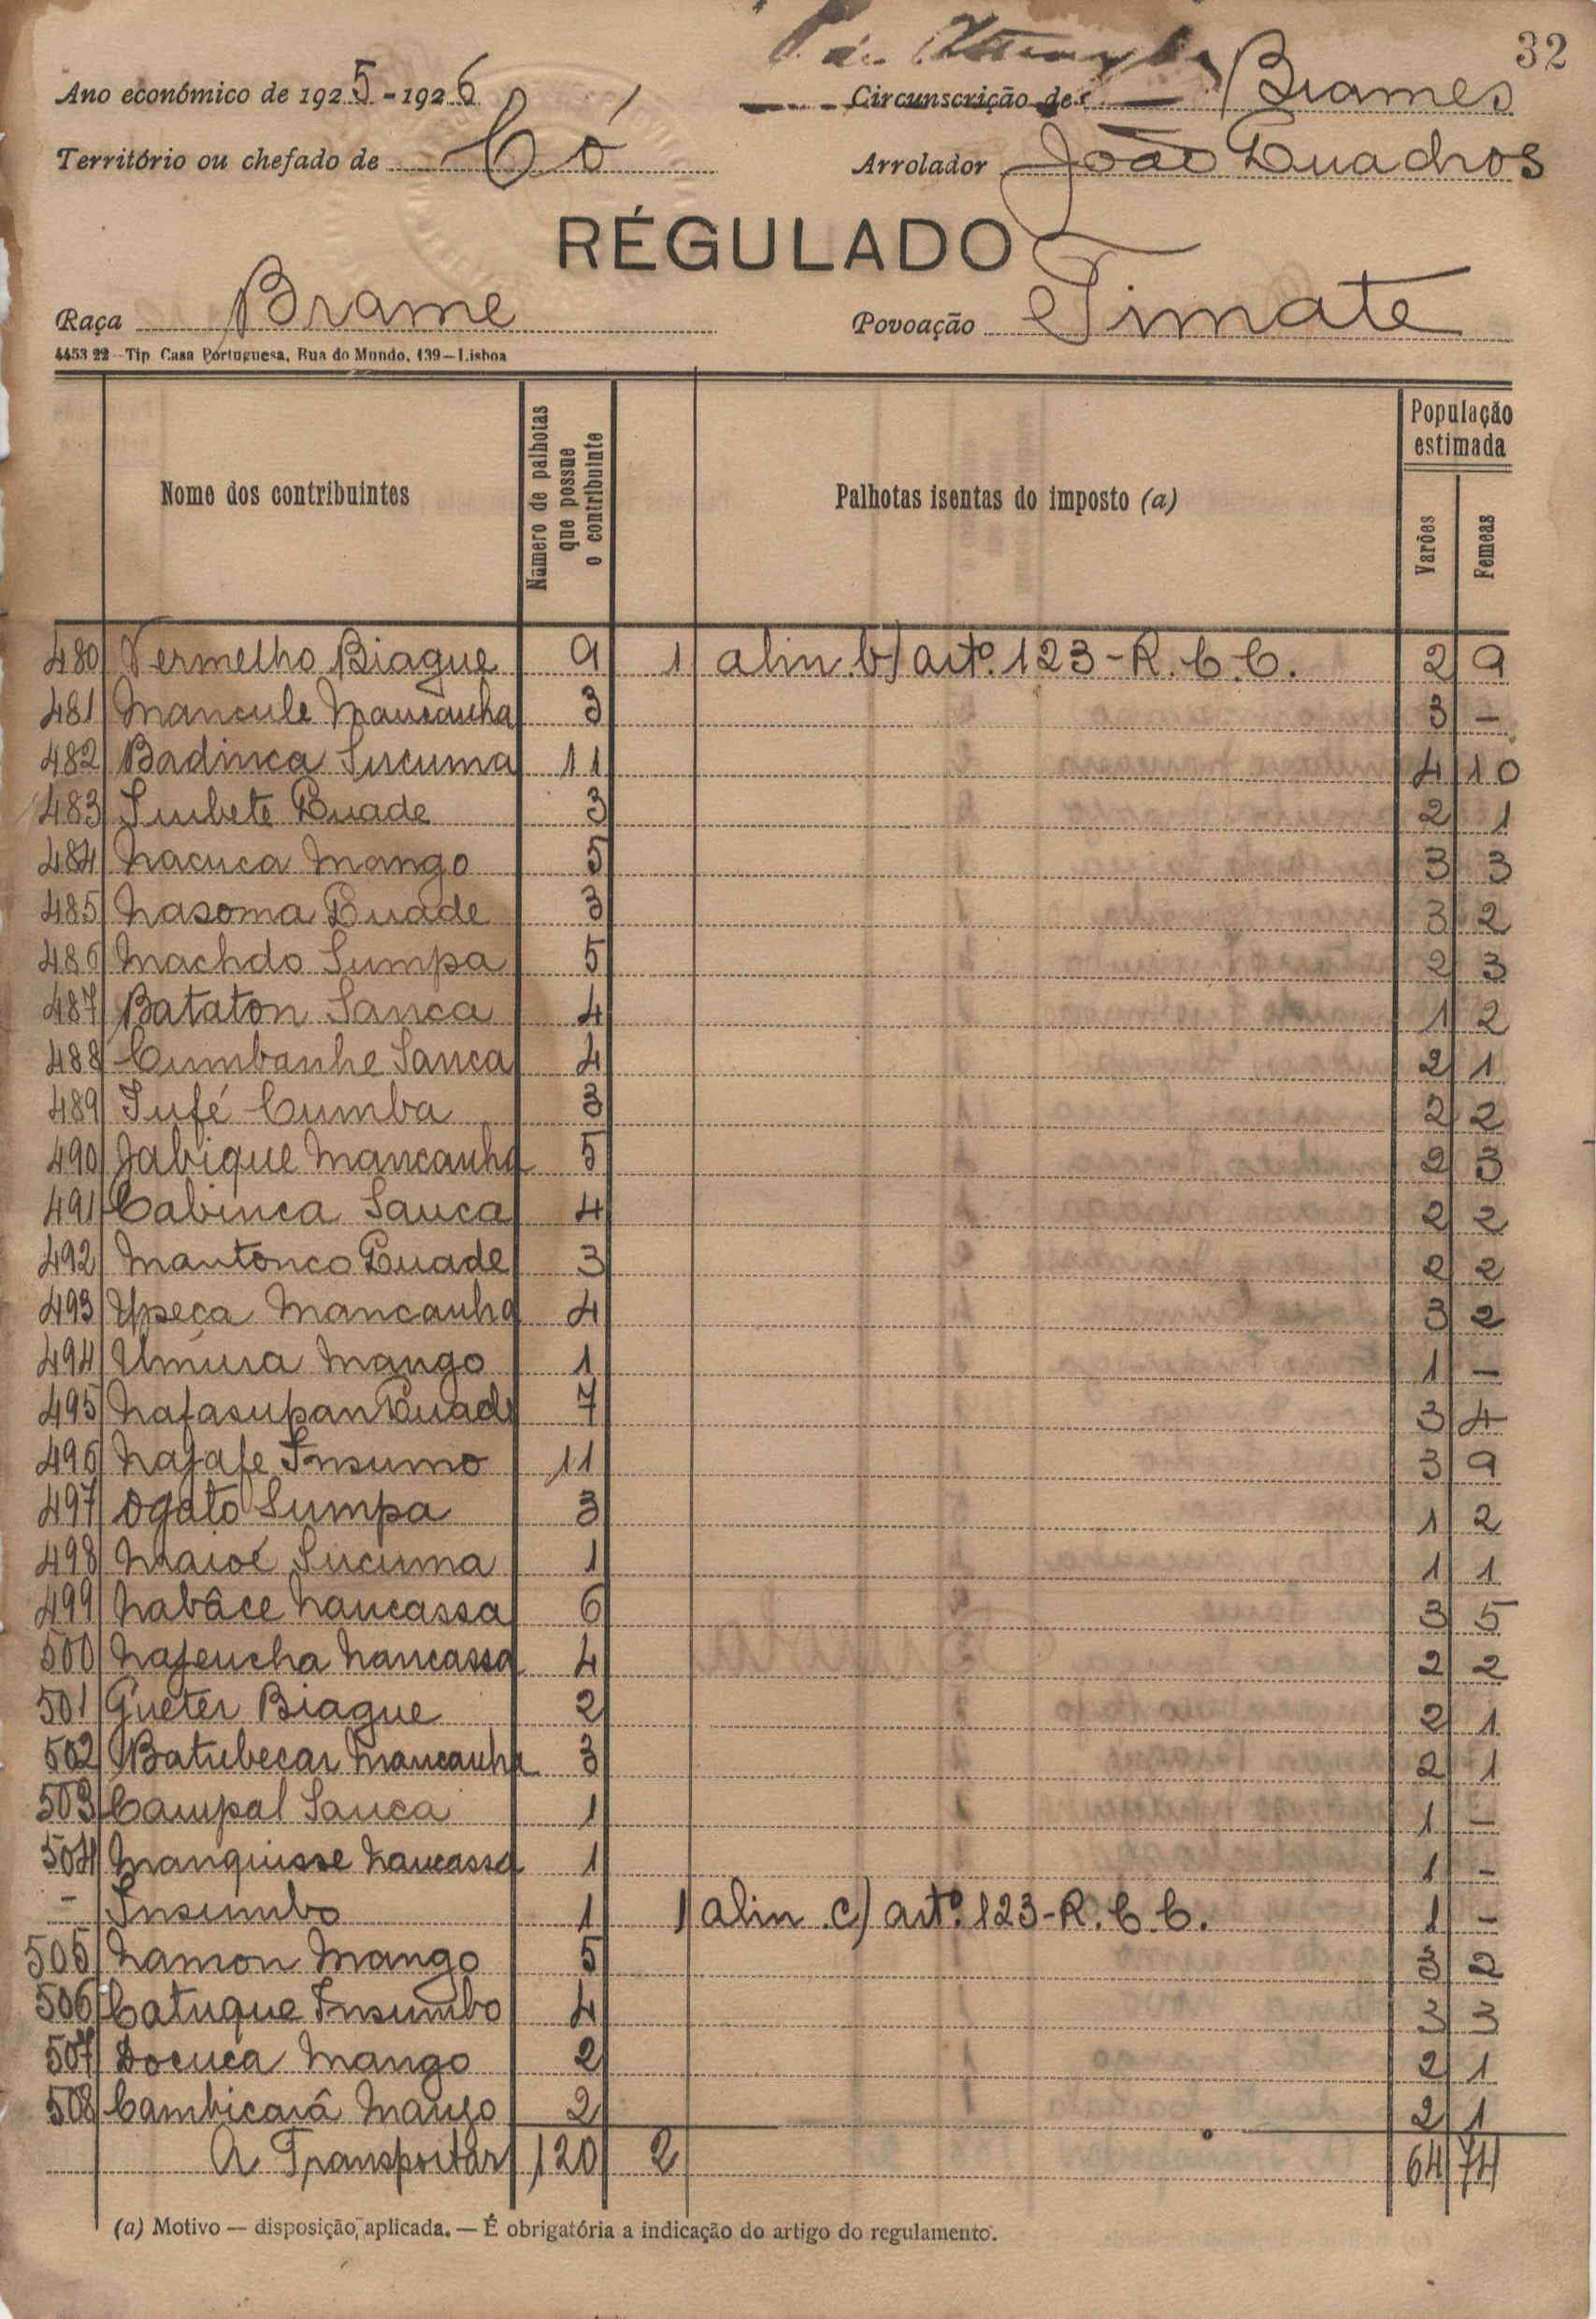 32
Ano económico de 1925-1926 Circunscrição de Brames
Território ou chefado de Có Arrolador João Quadros
RÉGULADO
Raça Brame Povoação Timate
4453 22 - Tip Casa Portuguesa, Rua do Mundo, 139 - Lisboa
Nome dos contribuintes Número de palhotas que possue o contribuinte Palhotas isentas do imposto (a) População estimada Varões Femeas
480 Vermelho Biague 9 1 alin. b) artº. 123 - R. C. C. 2 9
481 Mancule Mancanha 3 3 -
482 Badinca Sucuma 11 4 10
483 Subete Quade 3 2 1
484 Nacuca Mango 5 3 3
485 Nasoma Quade 3 3 2
486 Machdo Sumpa 5 2 3
487 Bataton Sanca 4 1 2
488 Cumbanhe Sanca 4 2 1
489 Tufé Cumba 3 2 2
490 Jabique Mancanha 5 2 3
491 Cabinca Sanca 4 2 2
492 Mantonco Quade 3 2 2
493 Upeca Mancanha 4 3 2
494 Umura Mango 1 1 -
495 Nafasupan Quade 7 3 4
496 Nafafe Insumo 11 3 9
497 Ogato Sumpa 3 1 2
498 Naioé Sucuma 1 1 1
499 Nabâce Nancassa 6 3 5
500 Nafeucha Nancassa 4 2 2
501 Gueter Biague 2 2 1
502 Batubecar Mancanha 3 2 1
503 Campal Sanca 1 1 -
504 Nanquisse Nancassa 1 1 -
- Insumbo 1 1 alin. c) artº. 123 - R. C. C. 1 -
505 Namon Mango 5 3 2
506 Catuque Insumbo 4 3 3
507 Docuca Mango 2 2 1
508 Cambicará Mango 2 2 1
A Transportar 120 2 64 74
(a) Motivo — disposição, aplicada. — É obrigatória a indicação do artigo do regulamento.